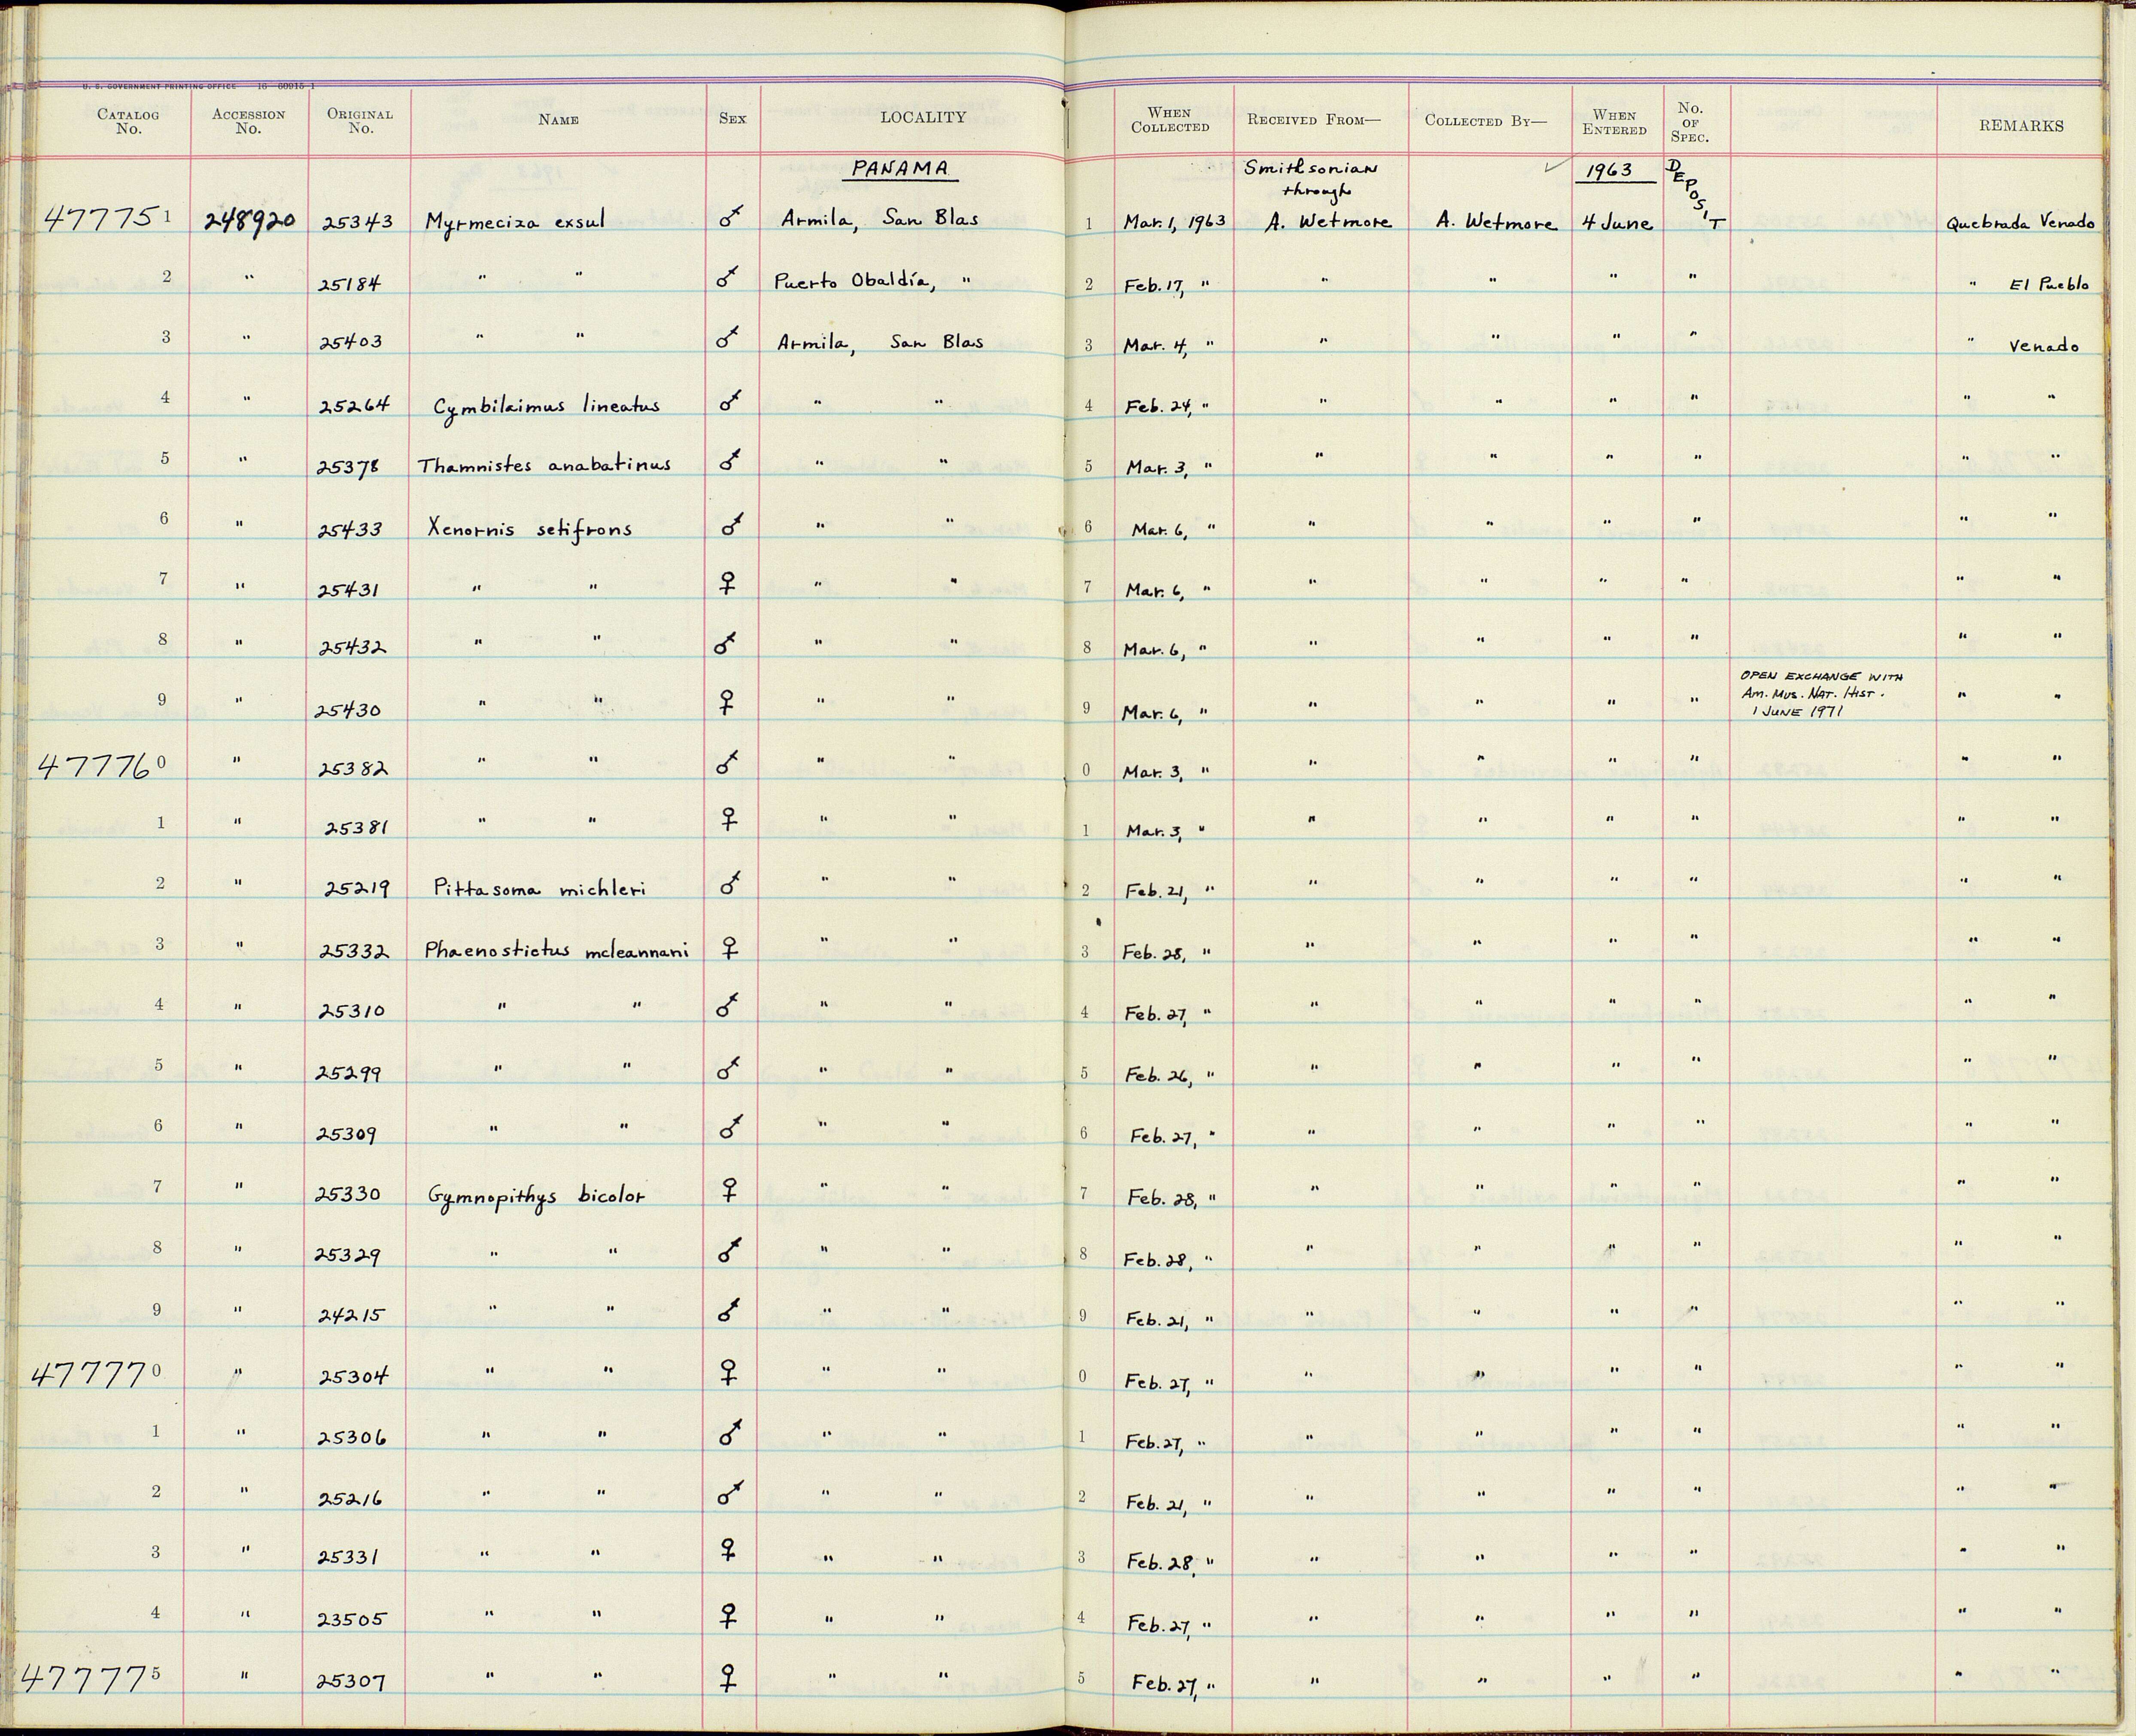 U. S. GOVERNMENT PRINTING OFFICE 16—60915-1
CATALOG No. ACCESSION No. ORIGINAL No. NAME SEX LOCALITY WHEN COLLECTED RECEIVED FROM— COLLECTED BY— WHEN ENTERED No. OF SPEC. REMARKS
PANAMA Smithsonian through ✓ 1963 DEPOSIT
477751 248920 25343 Myrmeciza exsul ♂ Armila, San Blas 1 Mar. 1, 1963 A. Wetmore A. Wetmore 4 June Quebrada Venado
2 " 25184 " " ♂ Puerto Obaldía, " 2 Feb. 17, " " " " " " El Pueblo
3 " 25403 " " ♂ Armila, San Blas 3 Mar. 4, " " " " " " Venado
4 " 25264 Cymbilaimus lineatus ♂ " " 4 Feb. 24, " " " " " " "
5 " 25378 Thamnistes anabatinus ♂ " " 5 Mar. 3, " " " " " " "
6 " 25433 Xenornis setifrons ♂ " " 6 Mar. 6, " " " " " " "
7 " 25431 " " ♀ " " 7 Mar. 6, " " " " " " "
8 " 25432 " " ♂ " " 8 Mar. 6, " " " " " " "
9 " 25430 " " ♀ " " 9 Mar. 6, " " " " " OPEN EXCHANGE WITH AM. MUS. NAT. HIST. 1 JUNE 1971 " "
477760 " 25382 " " ♂ " " 0 Mar. 3, " " " " " " "
1 " 25381 " " ♀ " " 1 Mar. 3, " " " " " " "
2 " 25219 Pittasoma michleri ♂ " " 2 Feb. 21, " " " " " " "
3 " 25332 Phaenostictus mcleannani ♀ " " 3 Feb. 28, " " " " " " "
4 " 25310 " " ♂ " " 4 Feb. 27, " " " " " " "
5 " 25299 " " ♂ " " 5 Feb. 26, " " " " " " "
6 " 25309 " " ♂ " " 6 Feb. 27, " " " " " " "
7 " 25330 Gymnopithys bicolor ♀ " " 7 Feb. 28, " " " " " " "
8 " 25329 " " ♂ " " 8 Feb. 28, " " " " " " "
9 " 24215 " " ♂ " " 9 Feb. 21, " " " " " " "
477770 " 25304 " " ♀ " " 0 Feb. 27, " " " " " " "
1 " 25306 " " ♂ " " 1 Feb. 27, " " " " " " "
2 " 25216 " " ♂ " " 2 Feb. 21, " " " " " " "
3 " 25331 " " ♀ " " 3 Feb. 28, " " " " " " "
4 " 23505 " " ♀ " " 4 Feb. 27, " " " " " " "
477775 " 25307 " " ♀ " " 5 Feb. 27, " " " " " " "